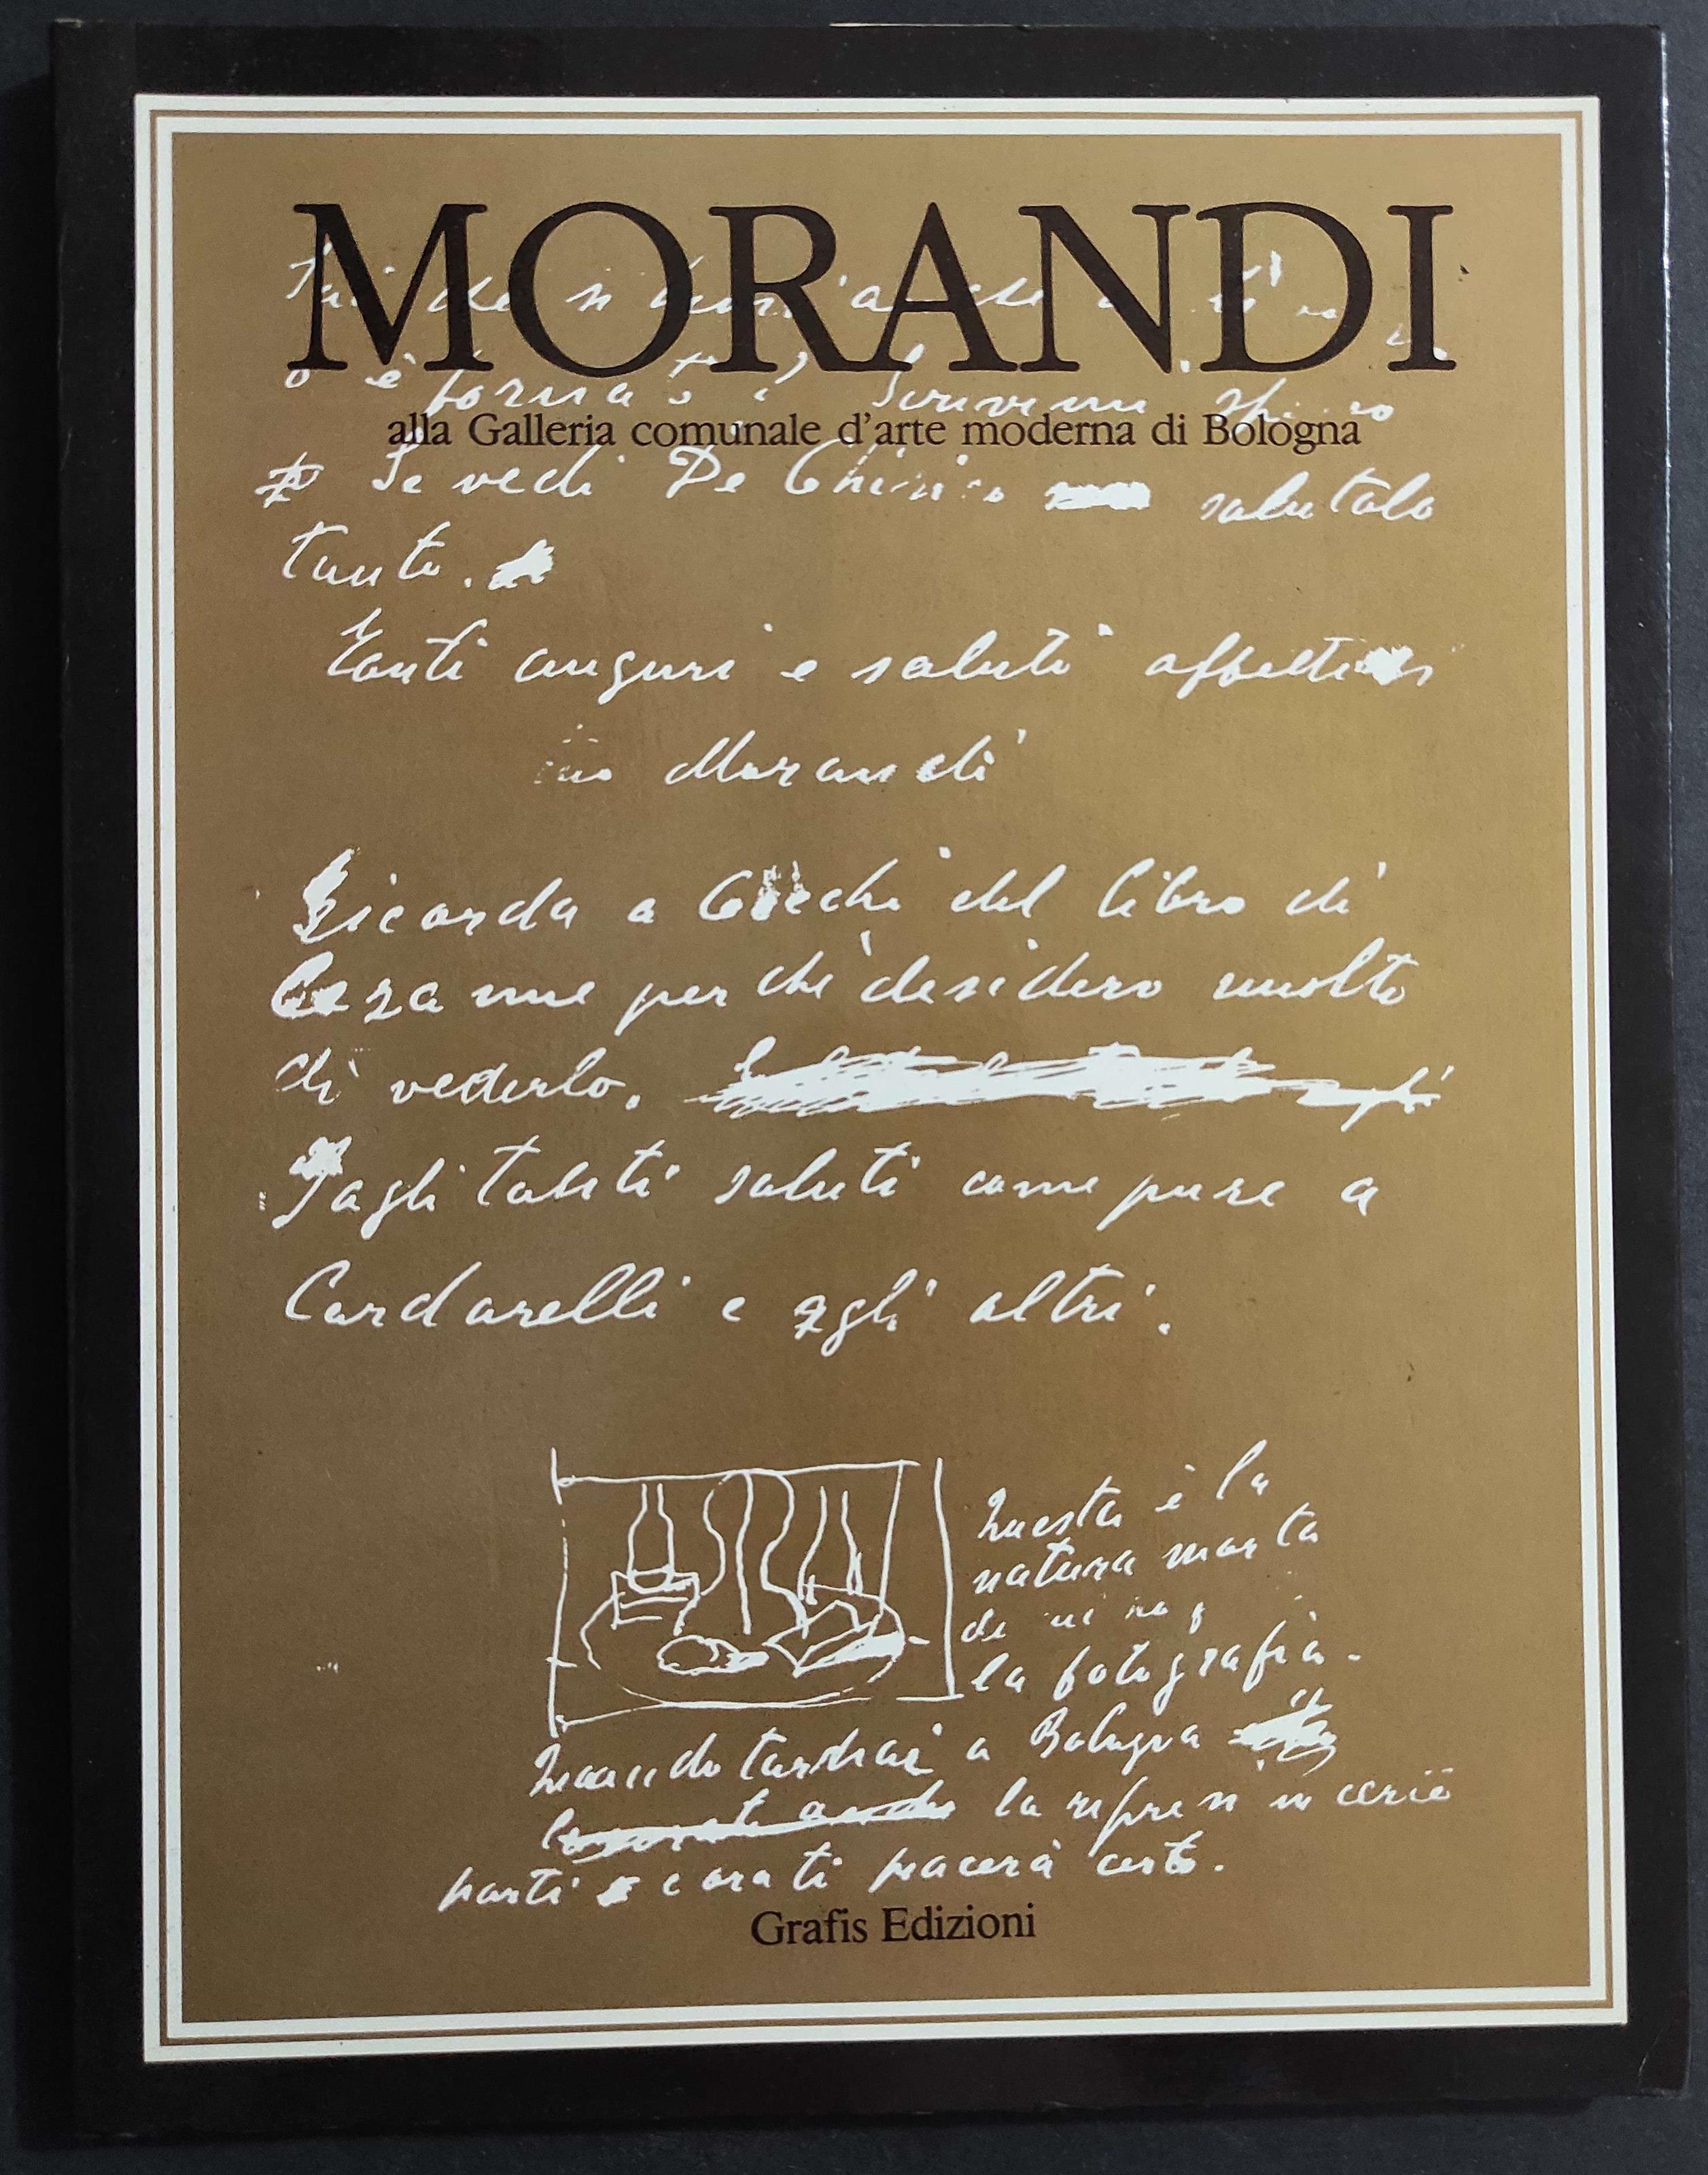 MORANDI
o è tornato? Scrivimi
alla Galleria comunale d'arte moderna di Bologna
Se vedi De Chirico salutalo
tanto.
Tanti auguri e saluti affettuosi
tuo Morandi
Ricorda a Cecchi del libro di
Cezanne perchè desidero molto
di vederlo.
Fagli tanti saluti come pure a
Cardarelli e agli altri.
Questa è la
natura morta
di cui
la fotografia.
Quando tornai a Bologna
la ripresi in certe
parti e ora ti piacerà certo.
Grafis Edizioni